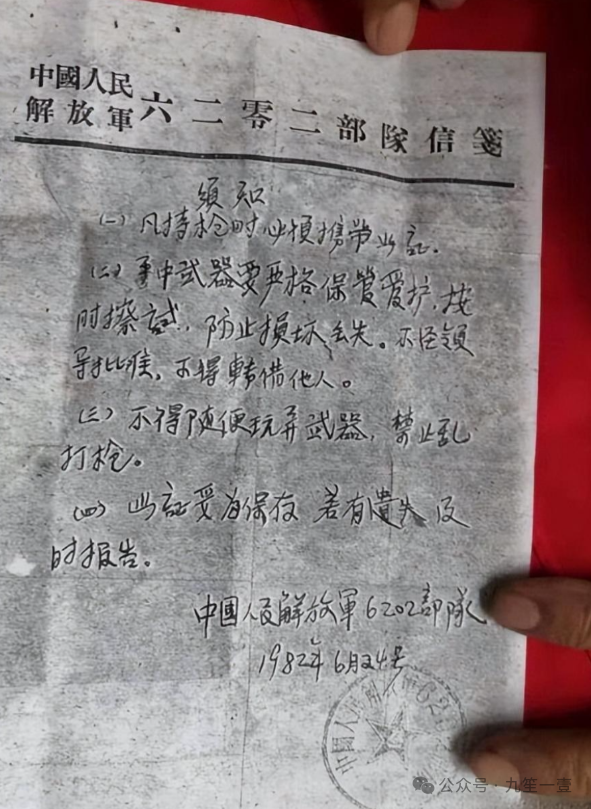 中國人民
解放軍六二零二部隊信箋
須知
(一)凡持枪时必須携带此証.
(二)手中武器要严格保管爱护.按
时擦拭，防止損坏丢失。不经領
导批准，不得轉借他人。
(三)不得随便玩弄武器，禁止乱
打枪。
(四)此証妥为保存 若有遺失 及
时报告。
中国人民解放軍6202部隊
1982年6月24号
中國人民解
公众号·九笙一壹